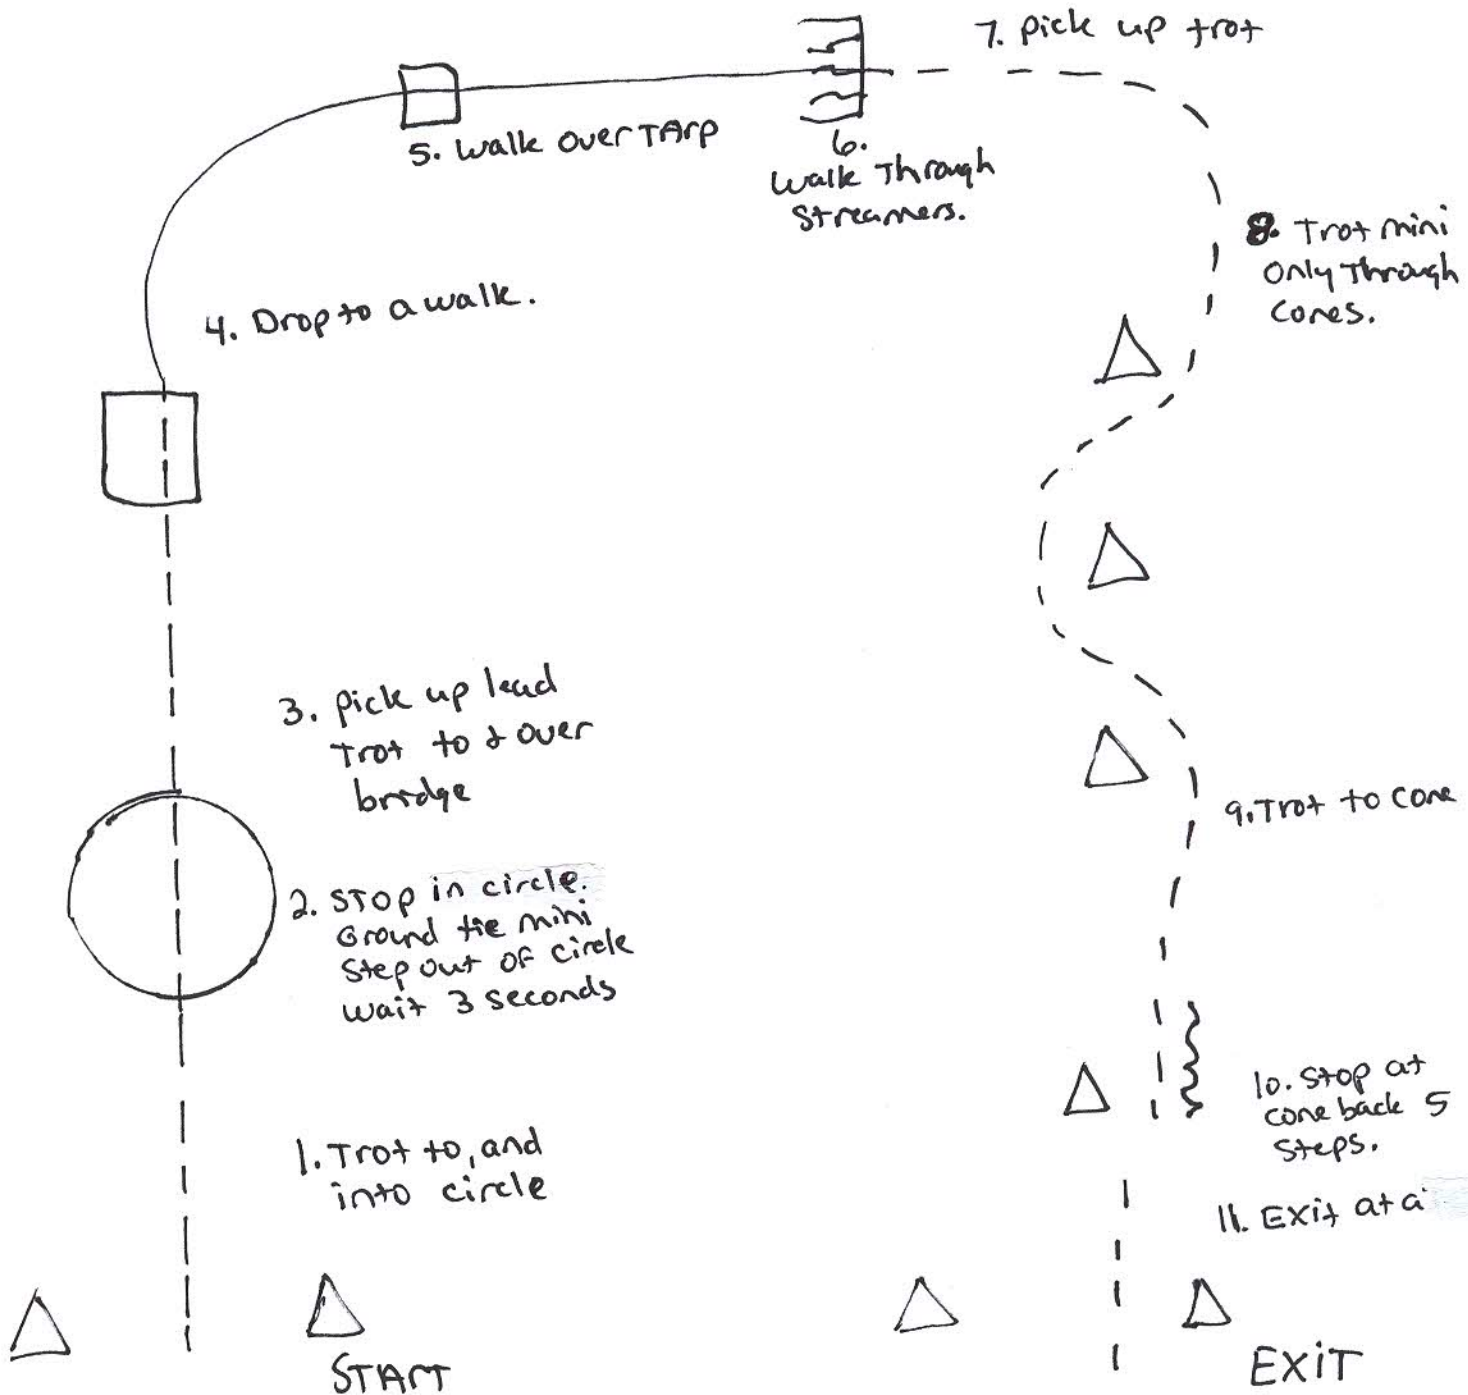 7. Pick up trot
5. Walk over TArp
6.
Walk Through
Streamers.
8. Trot mini
Only Through
Cones.
4. Drop to a walk.
3. Pick up lead
Trot to & over
bridge
9. Trot to cone
2. STOP in circle.
Ground tie mini
Step out of circle
wait 3 seconds
10. Stop at
cone back 5
Steps.
1. Trot to, and
into circle
11. Exit at a
START
EXIT